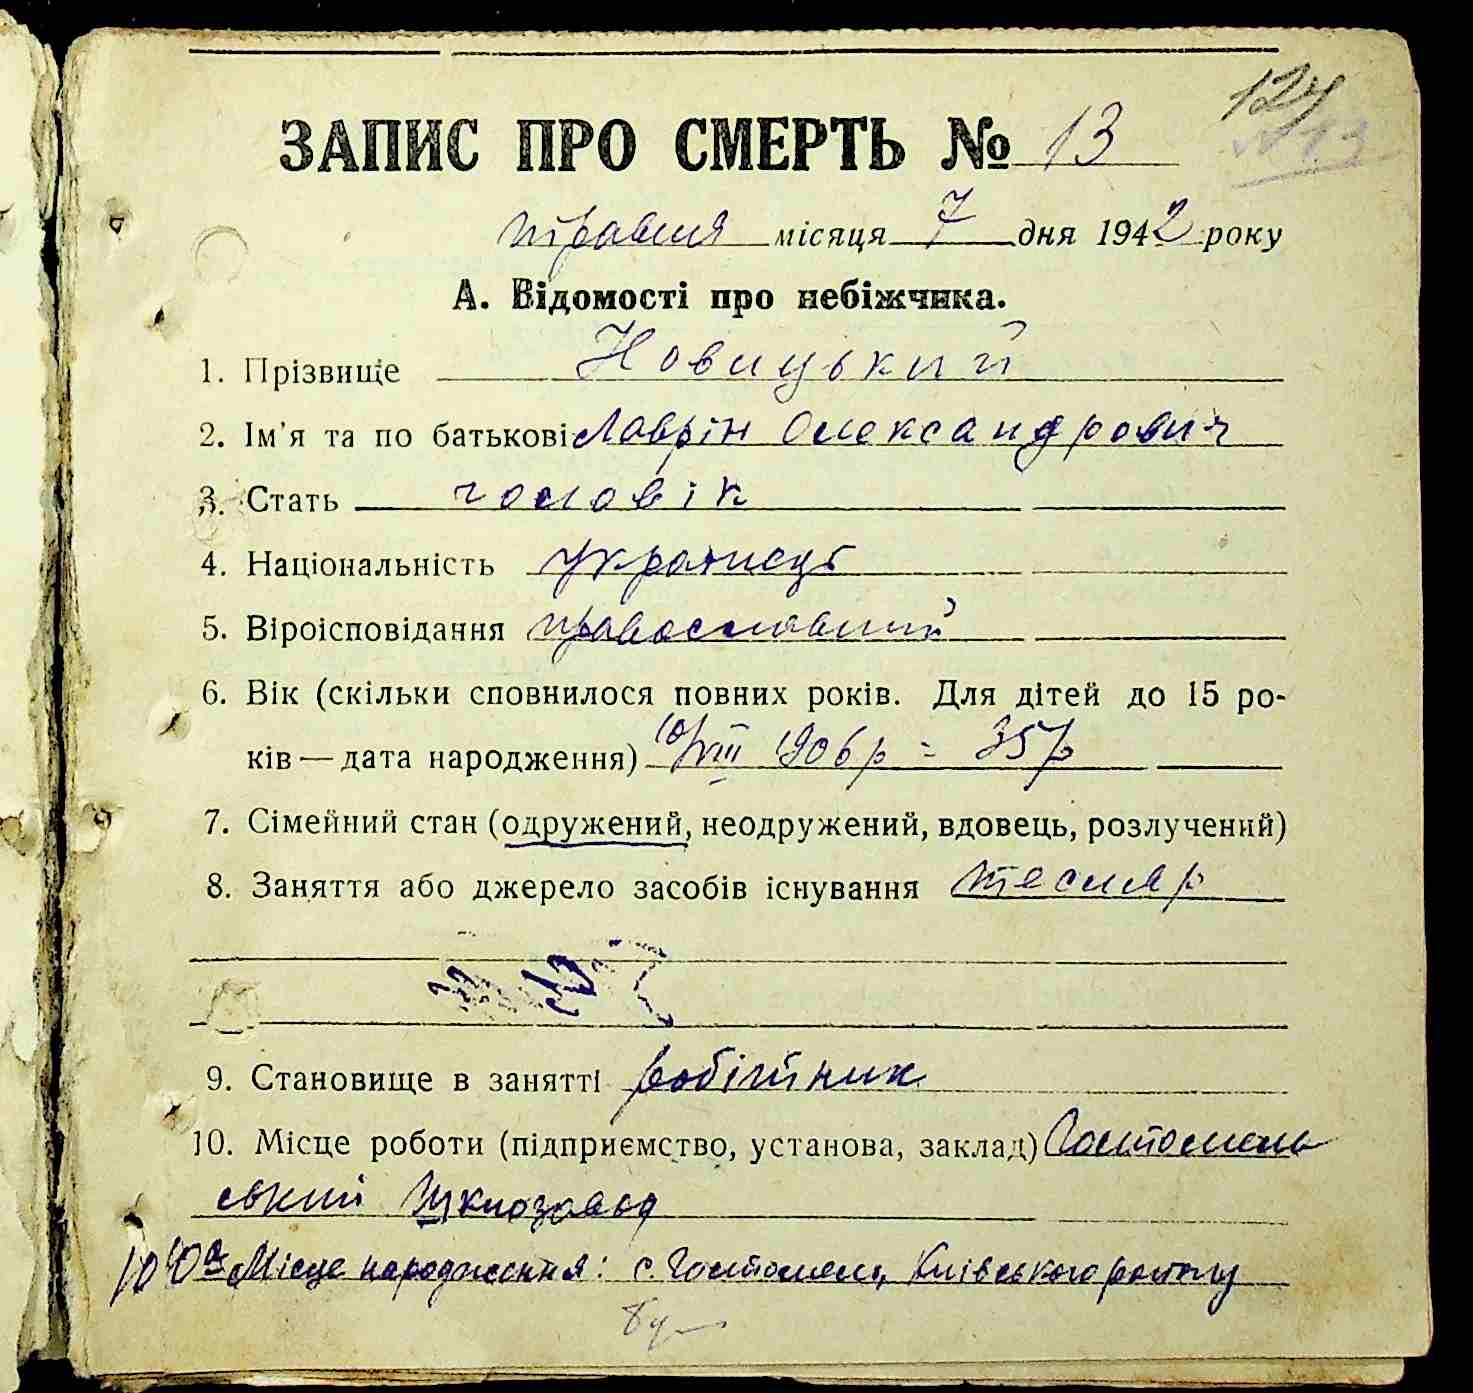 124
№ 13
ЗАПИС ПРО СМЕРТЬ № 13
травня місяця 7 дня 1942 року
А. Відомості про небіжчика.
1. Прізвище Новицький
2. Ім'я та по батькові Лаврін Олександрович
3. Стать чоловік
4. Національність українець
5. Віроісповідання православний
6. Вік (скільки сповнилося повних років. Для дітей до 15 ро-
ків — дата народження) 10/VIII 1906 р = 35 р
7. Сімейний стан (одружений, неодружений, вдовець, розлучений)
8. Заняття або джерело засобів існування тесляр
9. Становище в занятті робітник
10. Місце роботи (підприємство, установа, заклад) Гостомель
ський Шклозавод
10а Місце народження: с. Гостомель, Київського району